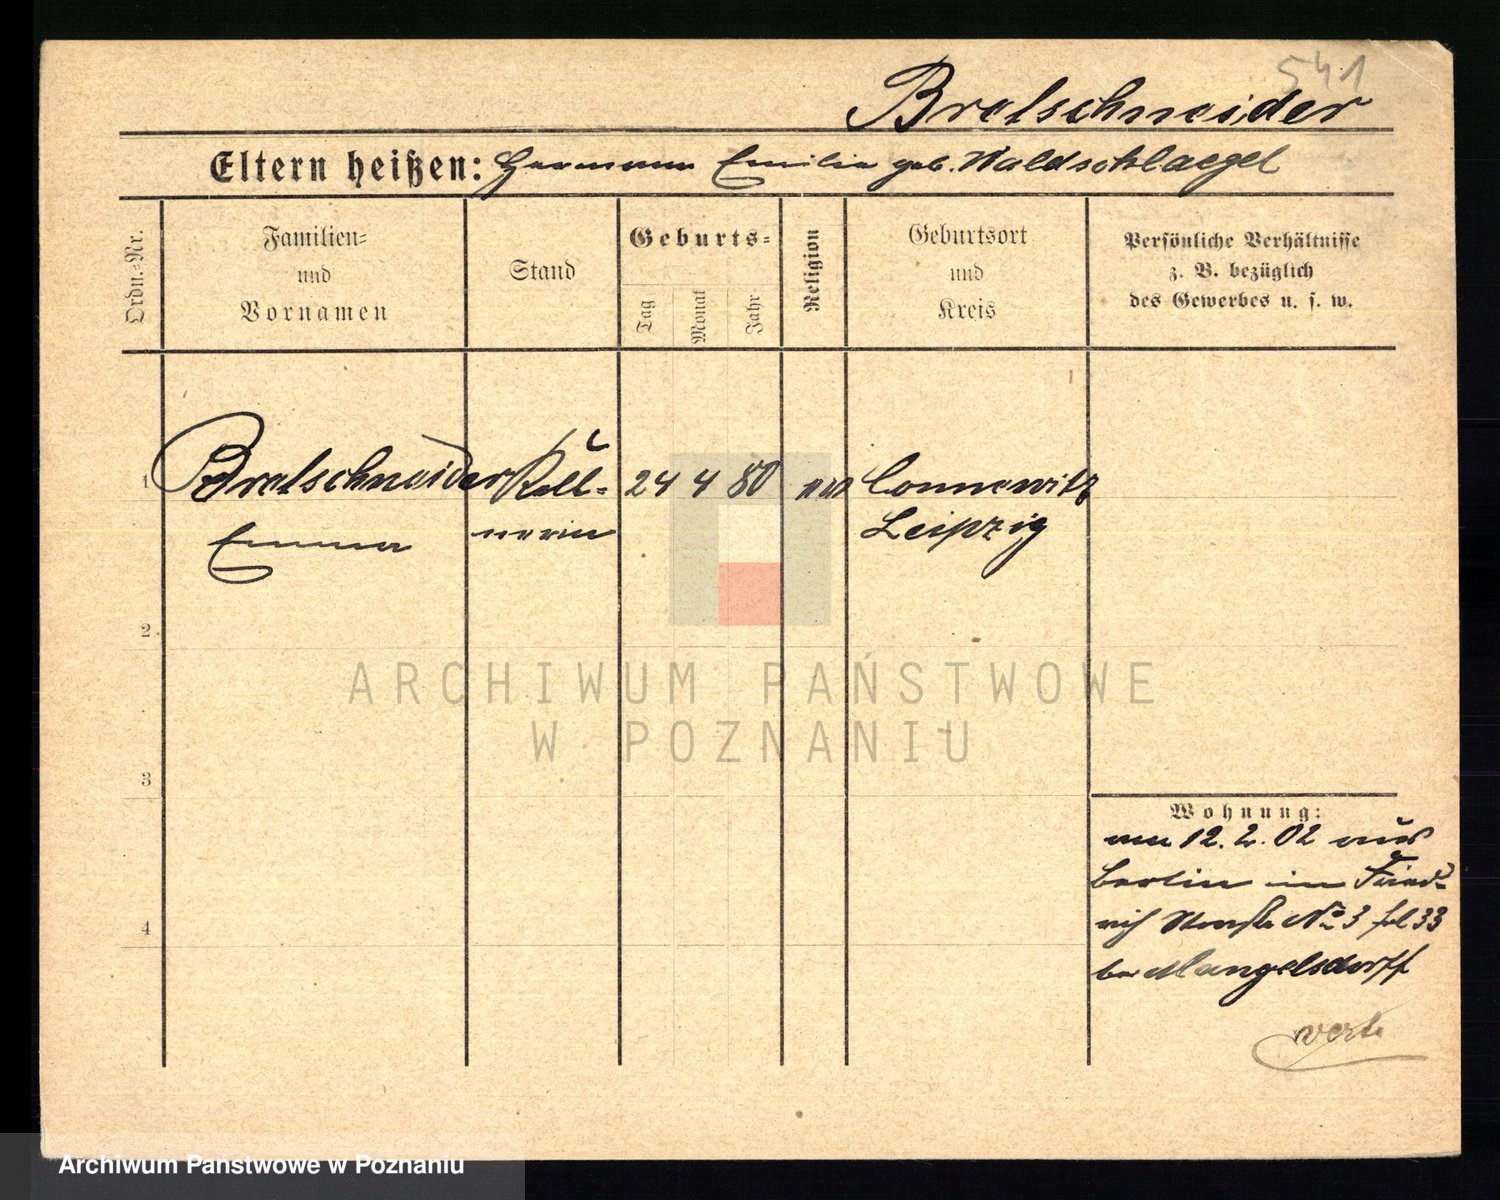 541
Bretschneider
Eltern heißen: Hermann Emilie geb. Waldschlaegel
Ordn.-Nr.
Familien-
und
Vornamen
Stand
Geburts-
Tag
Monat
Jahr
Religion
Geburtsort
und
Kreis
Persönliche Verhältnisse
z. B. bezüglich
des Gewerbes u. s. w.
1 Bretschneider Kell- 24 4 80 ev Connewitz
Emma nerin Leipzig
2
3
4
Wohnung:
am 12. 2. 02 aus
Berlin in Fried-
rich No 3 33
bei Mangelsdorff
verte
ARCHIWUM PAŃSTWOWE
W POZNANIU
Archiwum Państwowe w Poznaniu